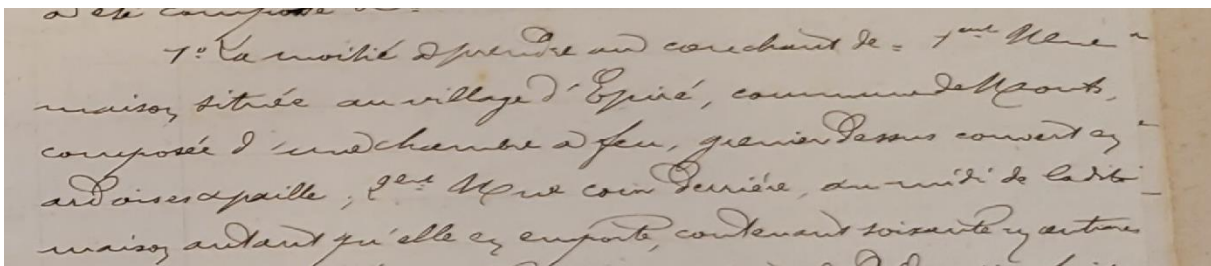 a été composé
1º La moitié à prendre au couchant de = 1ent Une
maison, située au village d'Epiré, commune de Monts,
composée d'une chambre à feu, grenier dessus couvert en
ardoises et paille, 2ent Une coin derrière, au midi de ladite
maison autant qu'elle en emporte, contenant soixante centiares